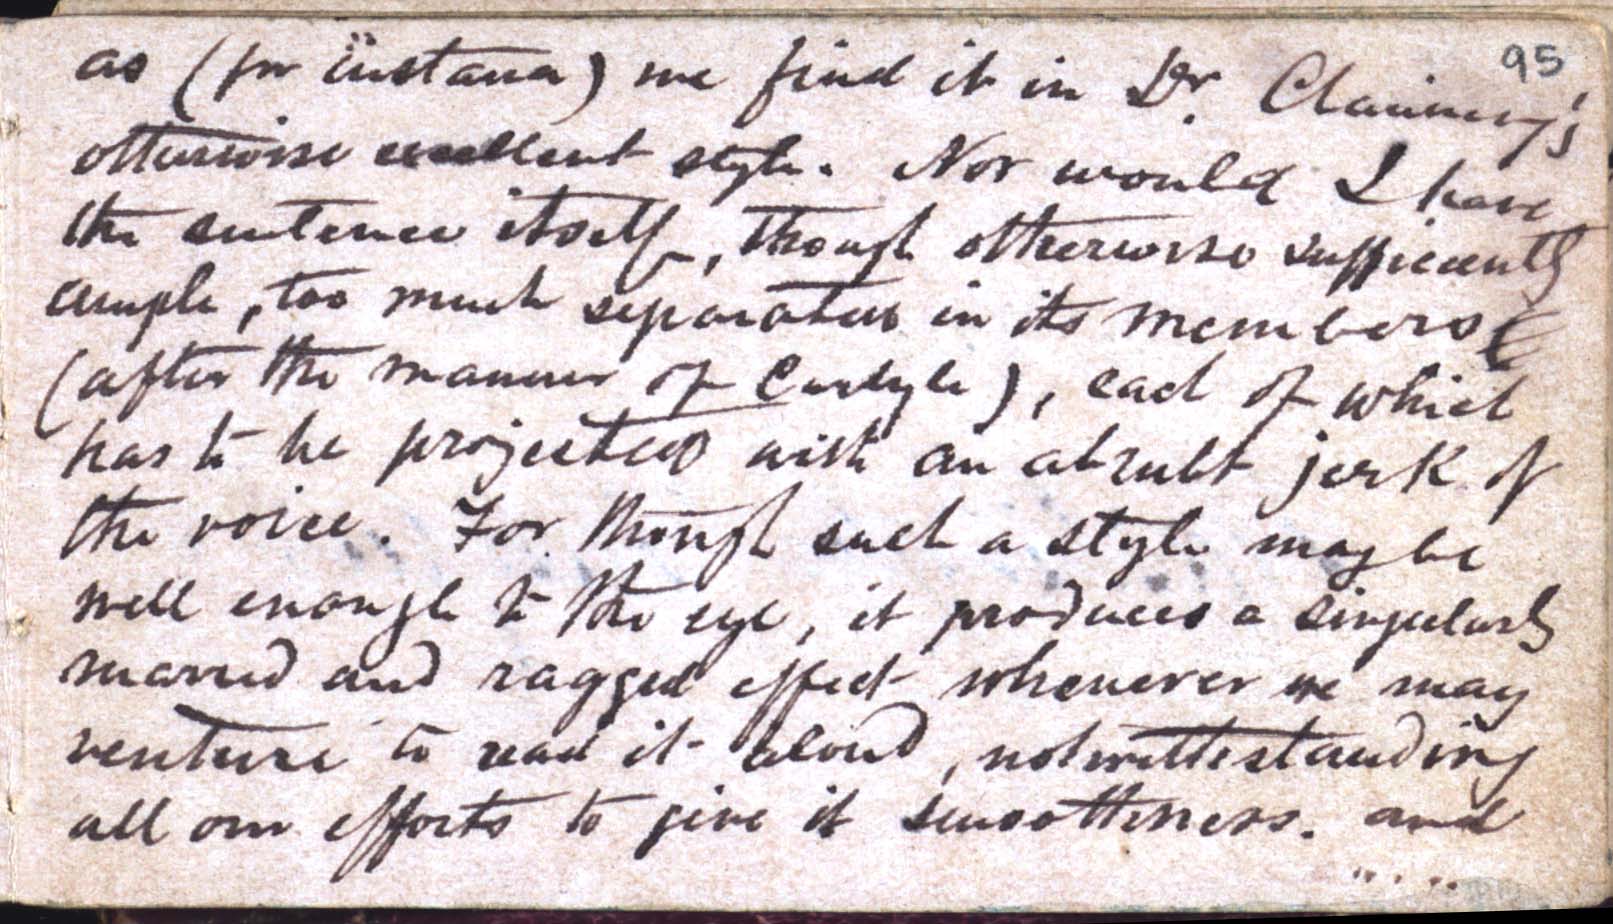 95
as (for instance) we find it in Dr. Channing's
otherwise excellent style. Nor would I have
the sentence itself, though otherwise sufficiently
ample, too much separated in its members
(after the manner of Carlyle), each of which
has to be projected with an abrubt jerk of
the voice. For though such a style may be
well enough to the eye, it produces a singularly
marred and ragged effect whenever we may
venture to read it aloud, notwithstanding
all our efforts to give it smoothness. and